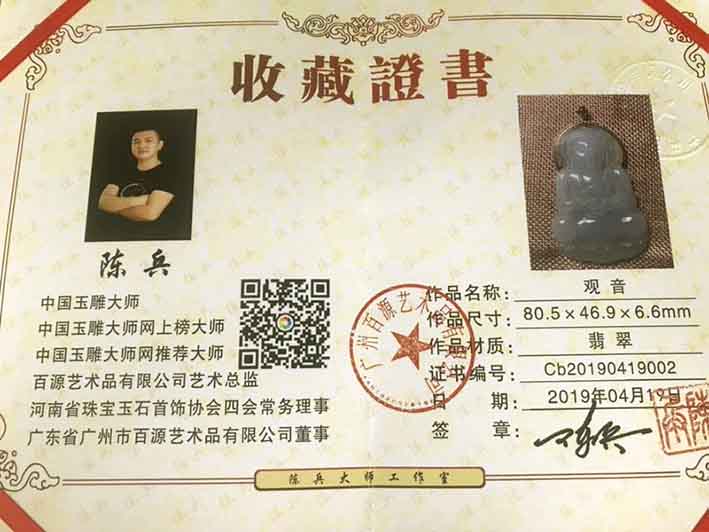 收藏證書
陈兵
中国玉雕大师
中国玉雕大师网上榜大师
中国玉雕大师网推荐大师
百源艺术品有限公司艺术总监
河南省珠宝玉石首饰协会四会常务理事
广东省广州市百源艺术品有限公司董事
作品名称：观音
作品尺寸：80.5×46.9×6.6mm
作品材质：翡翠
证书编号：Cb20190419002
日期：2019年04月19日
签章：
广州百源艺术品有限公司
陈兵大师工作室